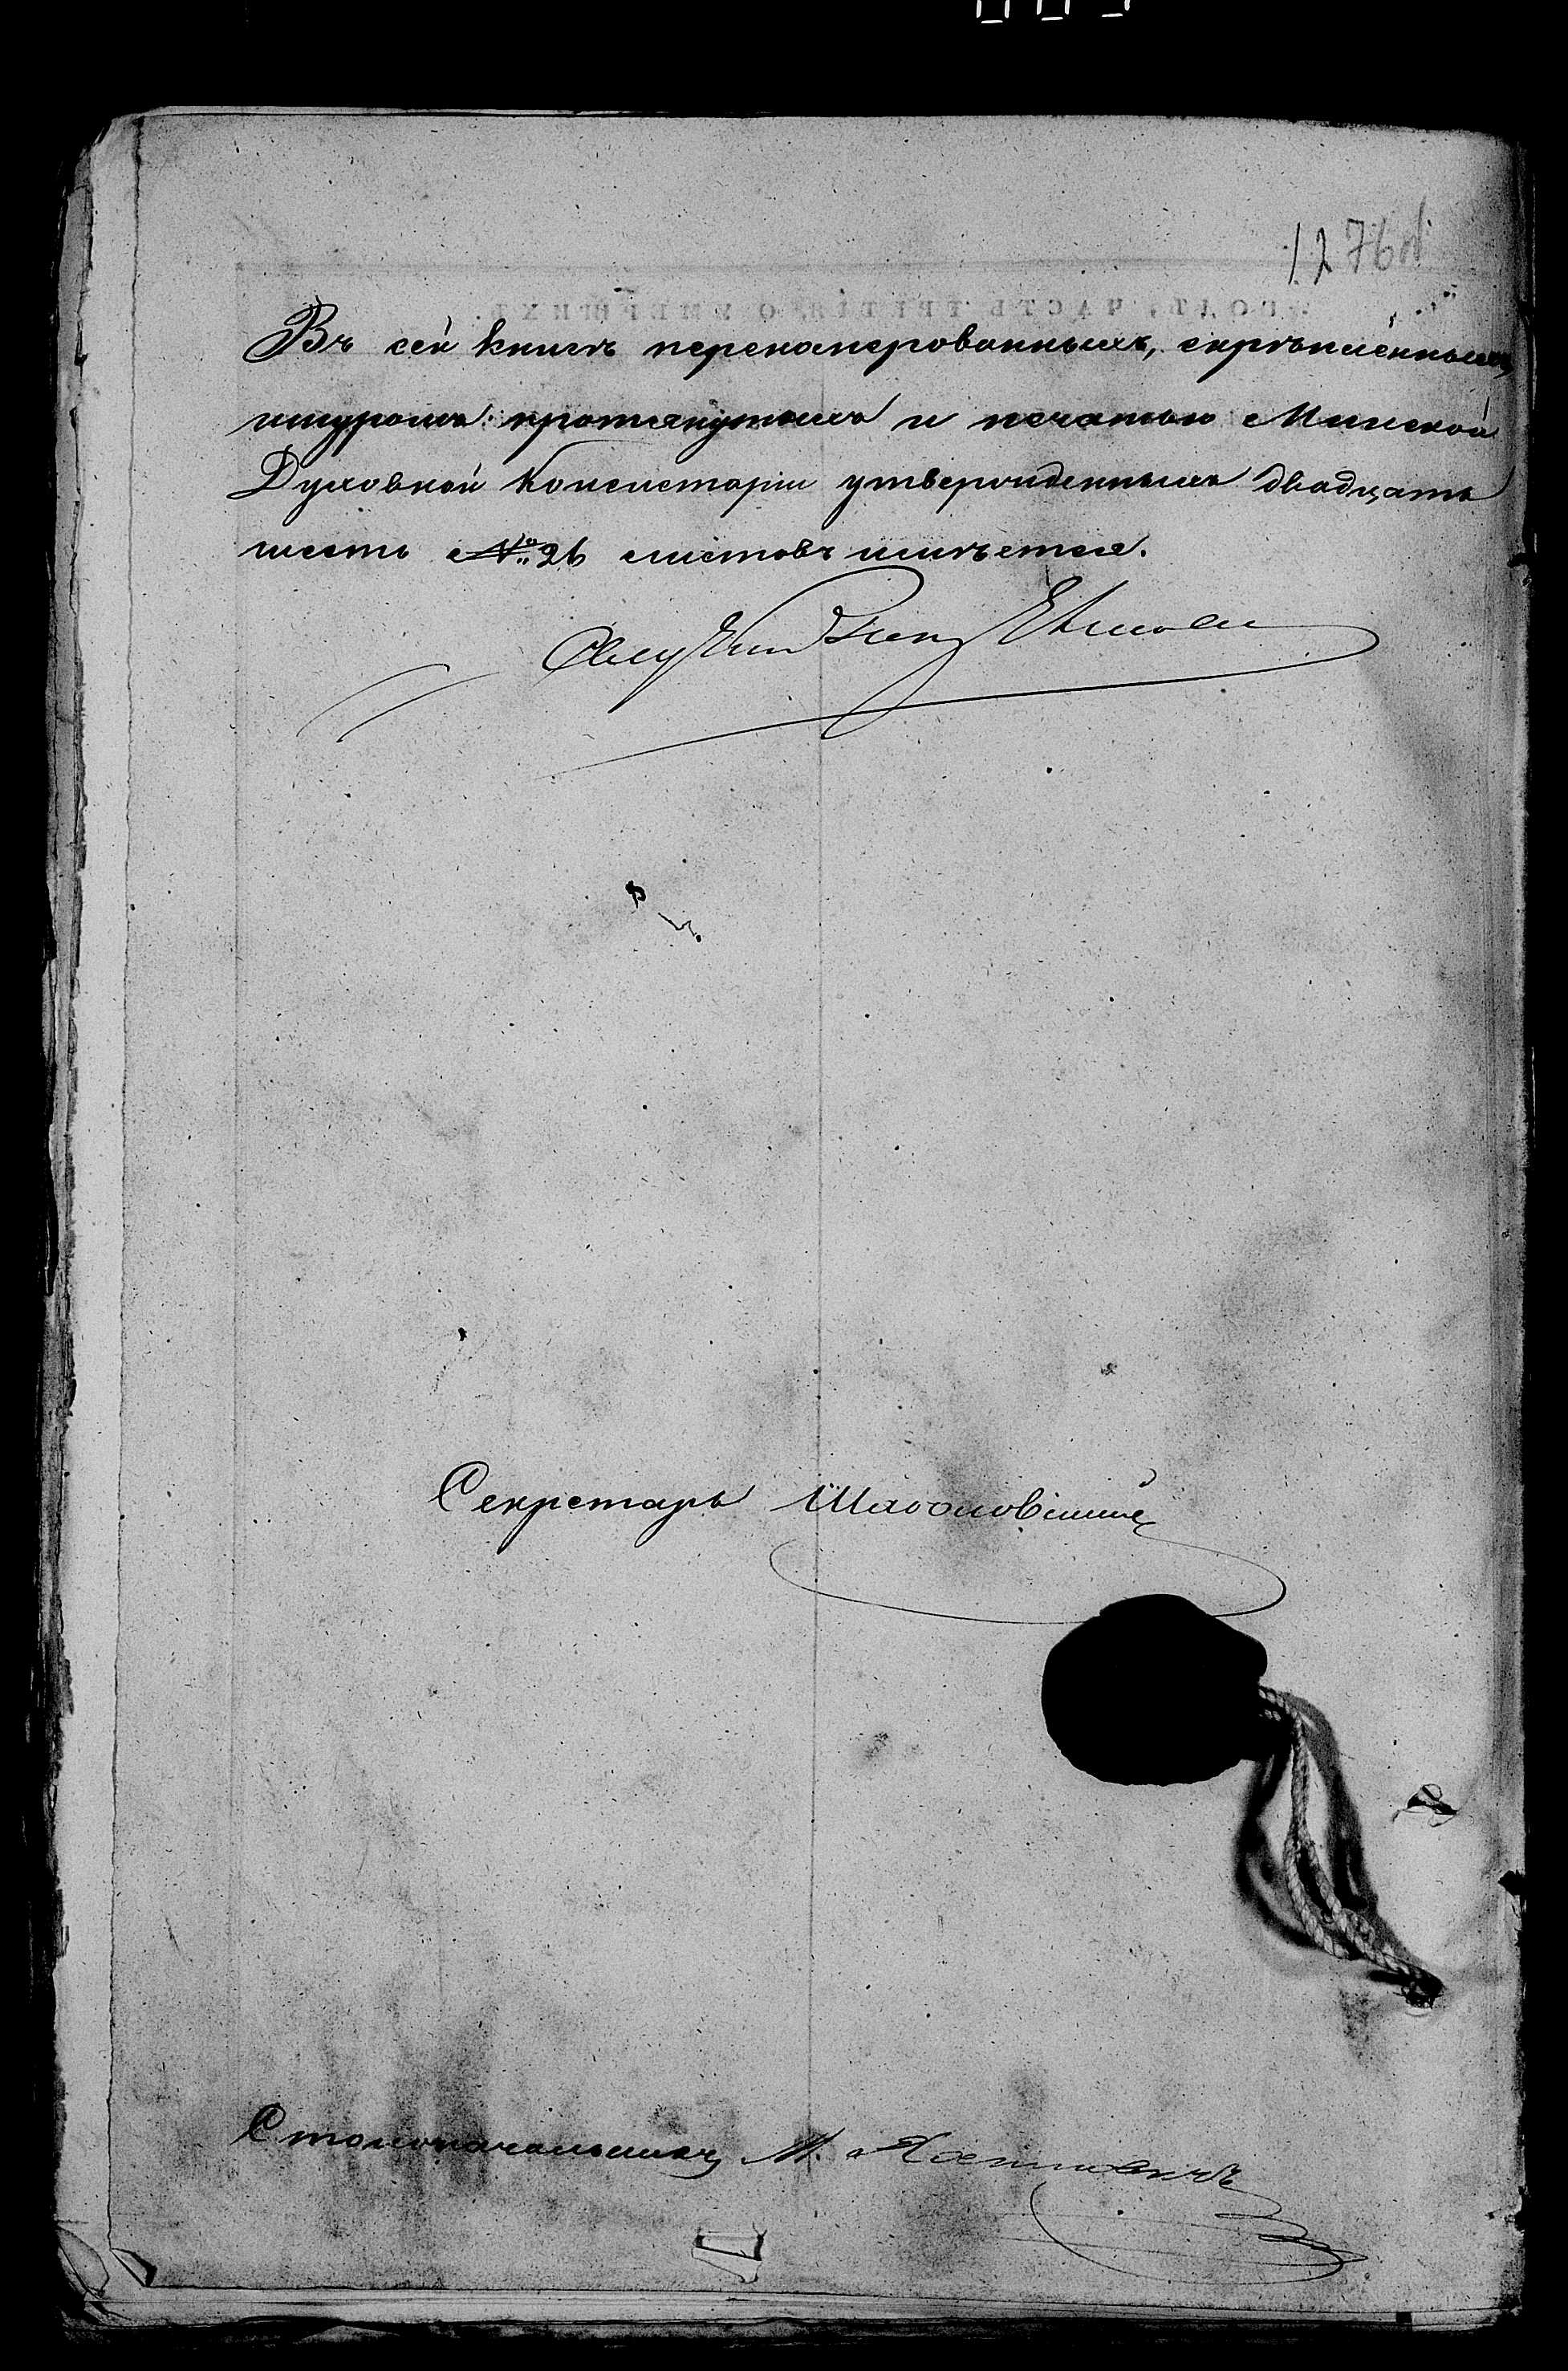 1276
Въ сей книгѣ перенамерованныхъ, скрѣпленныхъ,
шнуромъ протянутыхъ и печатью Минской
Духовной Консисторіи утвержденныхъ двадцать
шесть № 26 листовъ имѣется.
Секретарь
Столоначальникъ М.